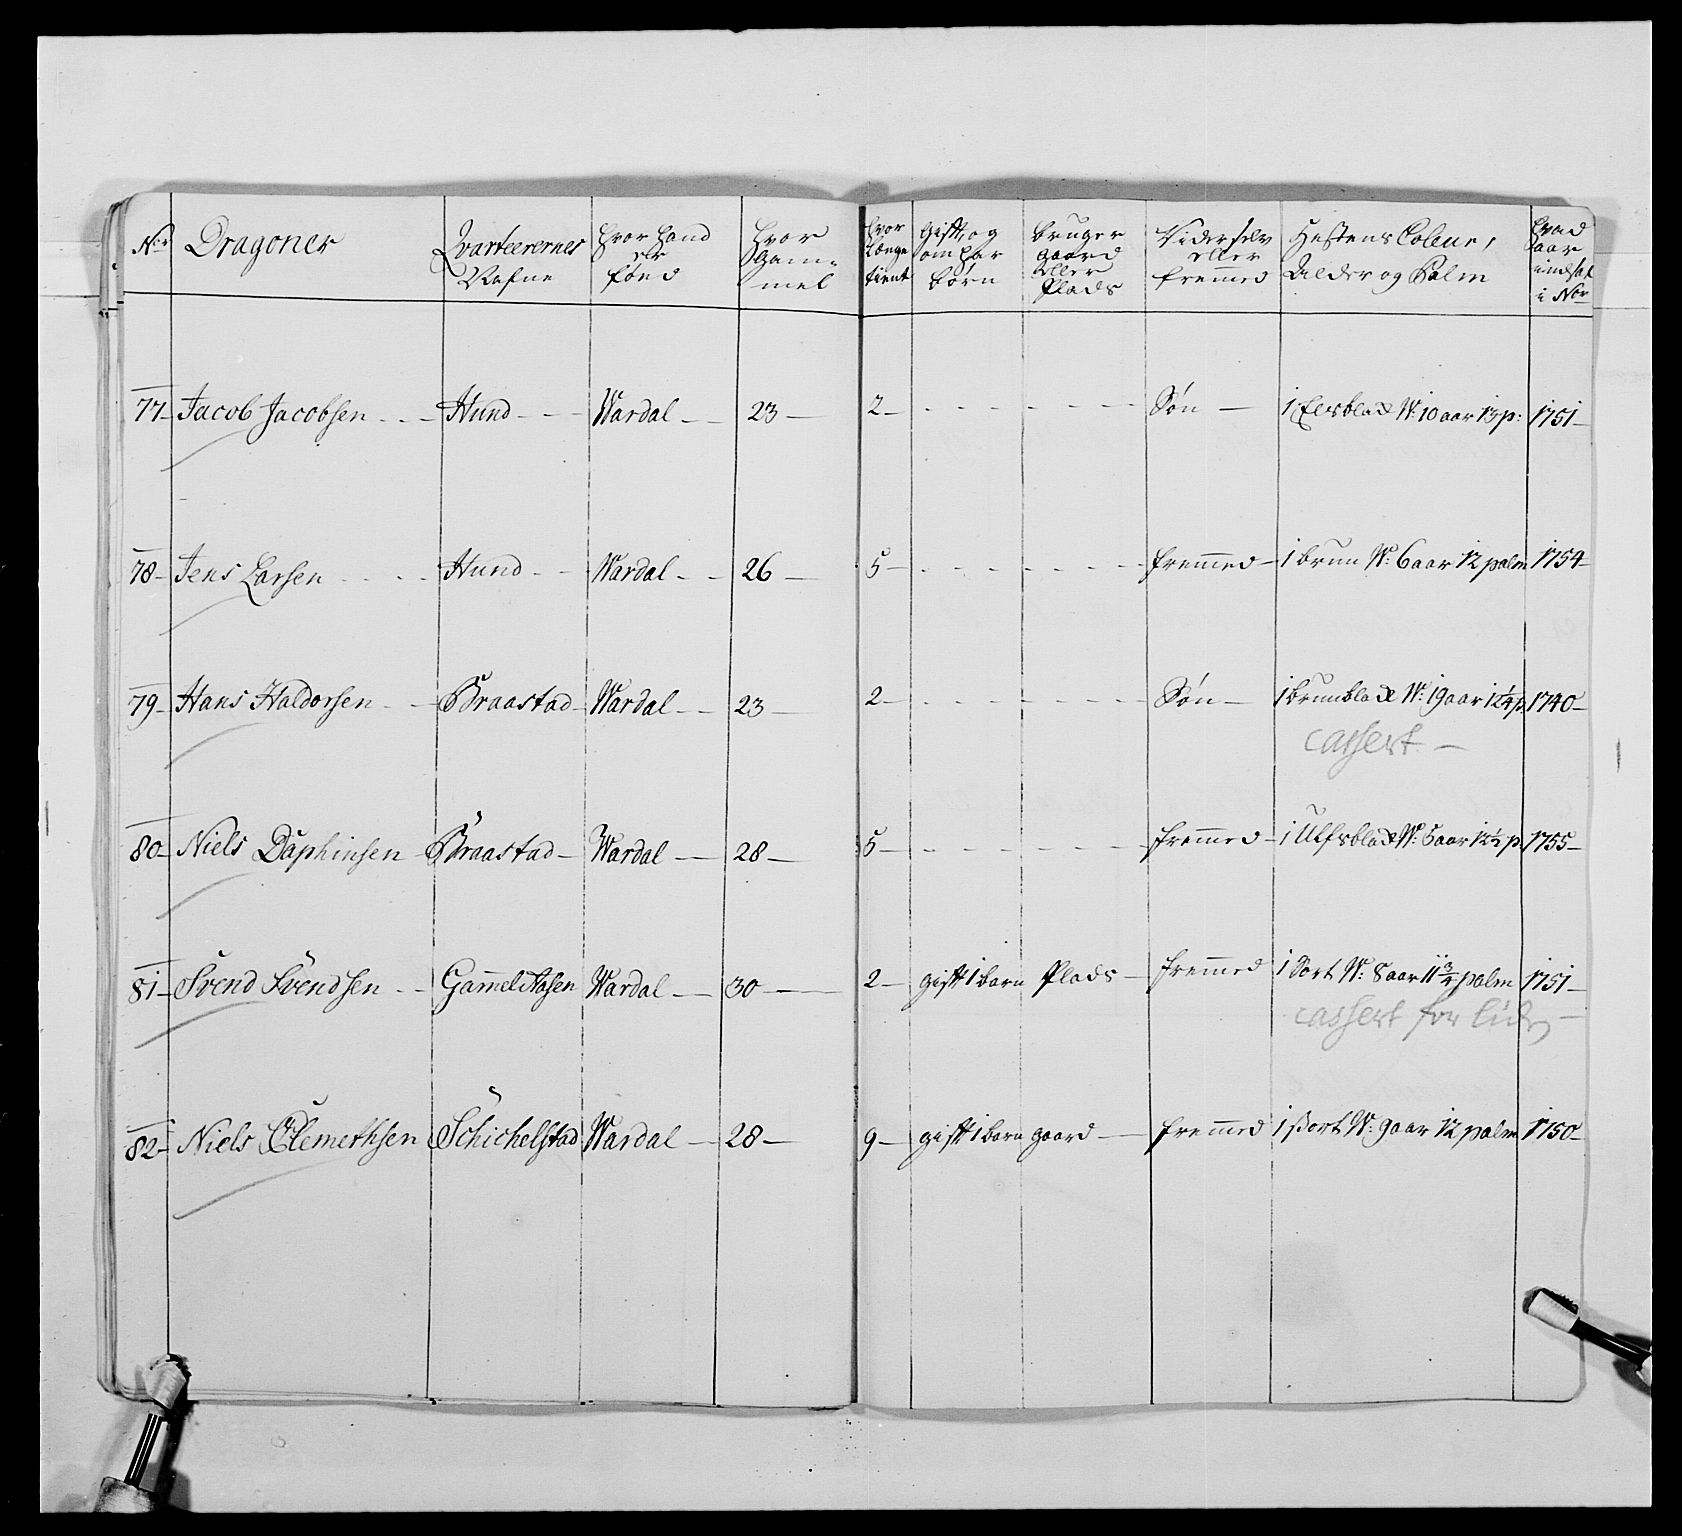 Nr Dragoner Qvarteerernes Nafne hvor hand er fönd hvor Gam= mel hvor længe tient gift, og om har börn bruger gaard eller Plads Rider selv eller fremmed Hestens Coleur, Alder og Palm hvad aar indsat i Nor
77 Jacob Jacobsen Hund Wardal 23 2 Sön 1 W: 10 aar 13 p: 1751
78 Jens Larsen Hund Wardal 26 5 fremmed 1 brun W: 6 aar 12 palm 1754
79 Hans Haldorsen Braastad Wardal 23 2 Sön 1 brunblact W: 19 aar 12¼ p 1740
cassert
80 Niels Daphinsen Braastad Wardal 28 5 fremmed 1 Ulfsblact W: 5 aar 12½ p 1755
81 Svend Svendsen Gammel Aasen Wardal 30 2 gift 1 barn Plads fremmed 1 Sort W: 8 aar 11¾ palm 1751
cassert for
82 Niels Clemethsen Schichelstad Wardal 28 9 gift 1 barn gaard fremmed 1 sort W: 9 aar 12 palm 1750